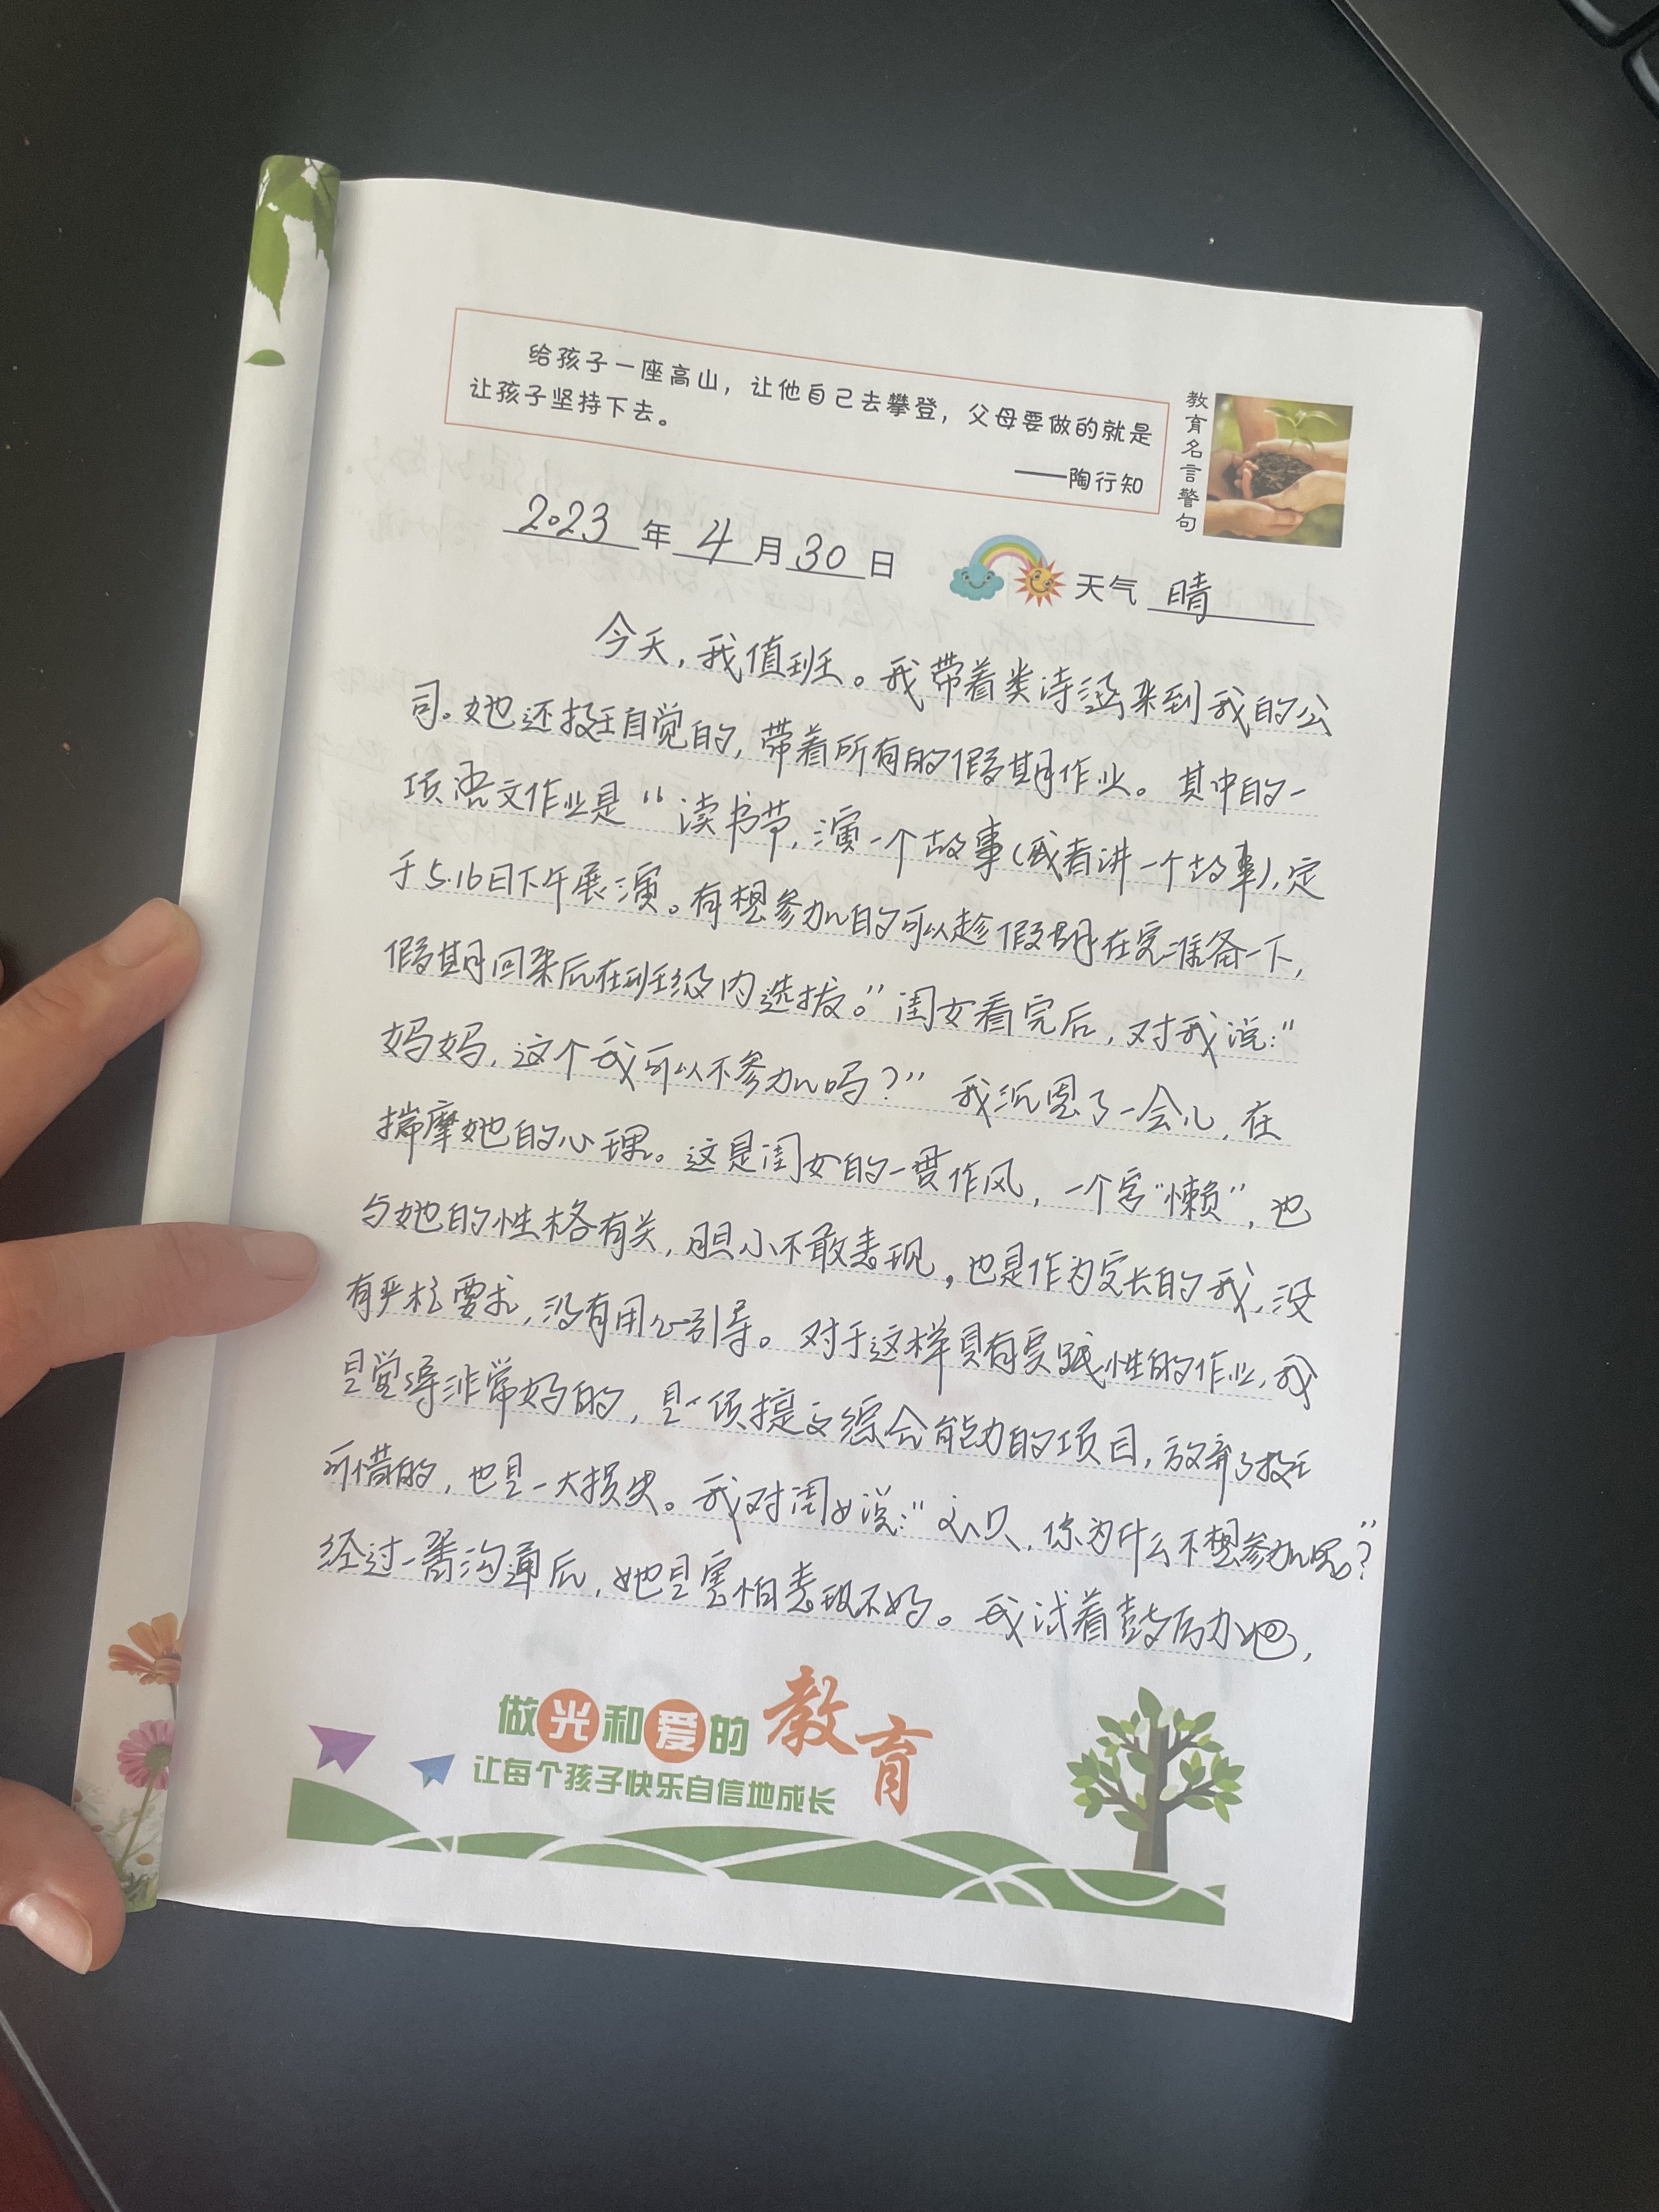 给孩子一座高山，让他自己去攀登，父母要做的就是
让孩子坚持下去。
——陶行知
教育名言警句
2023年4月30日 天气 晴
今天，我值班。我带着娄诗涵来到我的公
司。她还挺自觉的，带着所有的假期作业。其中的一
项语文作业是“读书节，演一个故事（或者讲一个故事），定
于5.16日下午展演。有想参加的可以趁假期在家准备一下，
假期回来后在班级内选拔。”闺女看完后，对我说：“
妈妈，这个我可以不参加吗？”我沉思了一会儿，在
揣摩她的心理。这是闺女的一贯作风，一个字“懒”，也
与她的性格有关，胆小不敢表现，也是作为家长的我，没
有严格要求，没有用心引导。对于这样具有实践性的作业，我
是觉得非常好的，是一项提高综合能力的项目，放弃了挺
可惜的，也是一大损失。我对闺女说：“，你为什么不想参加呢？”
经过一番沟通后，她是害怕表现不好。我试着鼓励她，
做光和爱的教育
让每个孩子快乐自信地成长